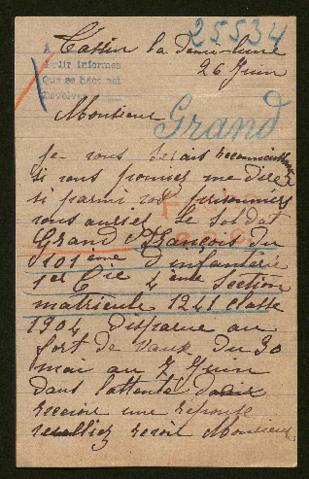 25534
Tassin la demi-lune
26 Juin
Monsieur
Grand
Je vous serais reconnaissante
si vous pouvez me dire
si parmi vos prisonniers
vous auriez le soldat
Grand François du
101ème d'infanterie
1er Cie 4ème Section
matricule 1241 classe
1904 disparue au
fort de Vaux du 30
mai au 7 Juin
dans l'attente
recevoir une réponse
veuilliez Monsieur